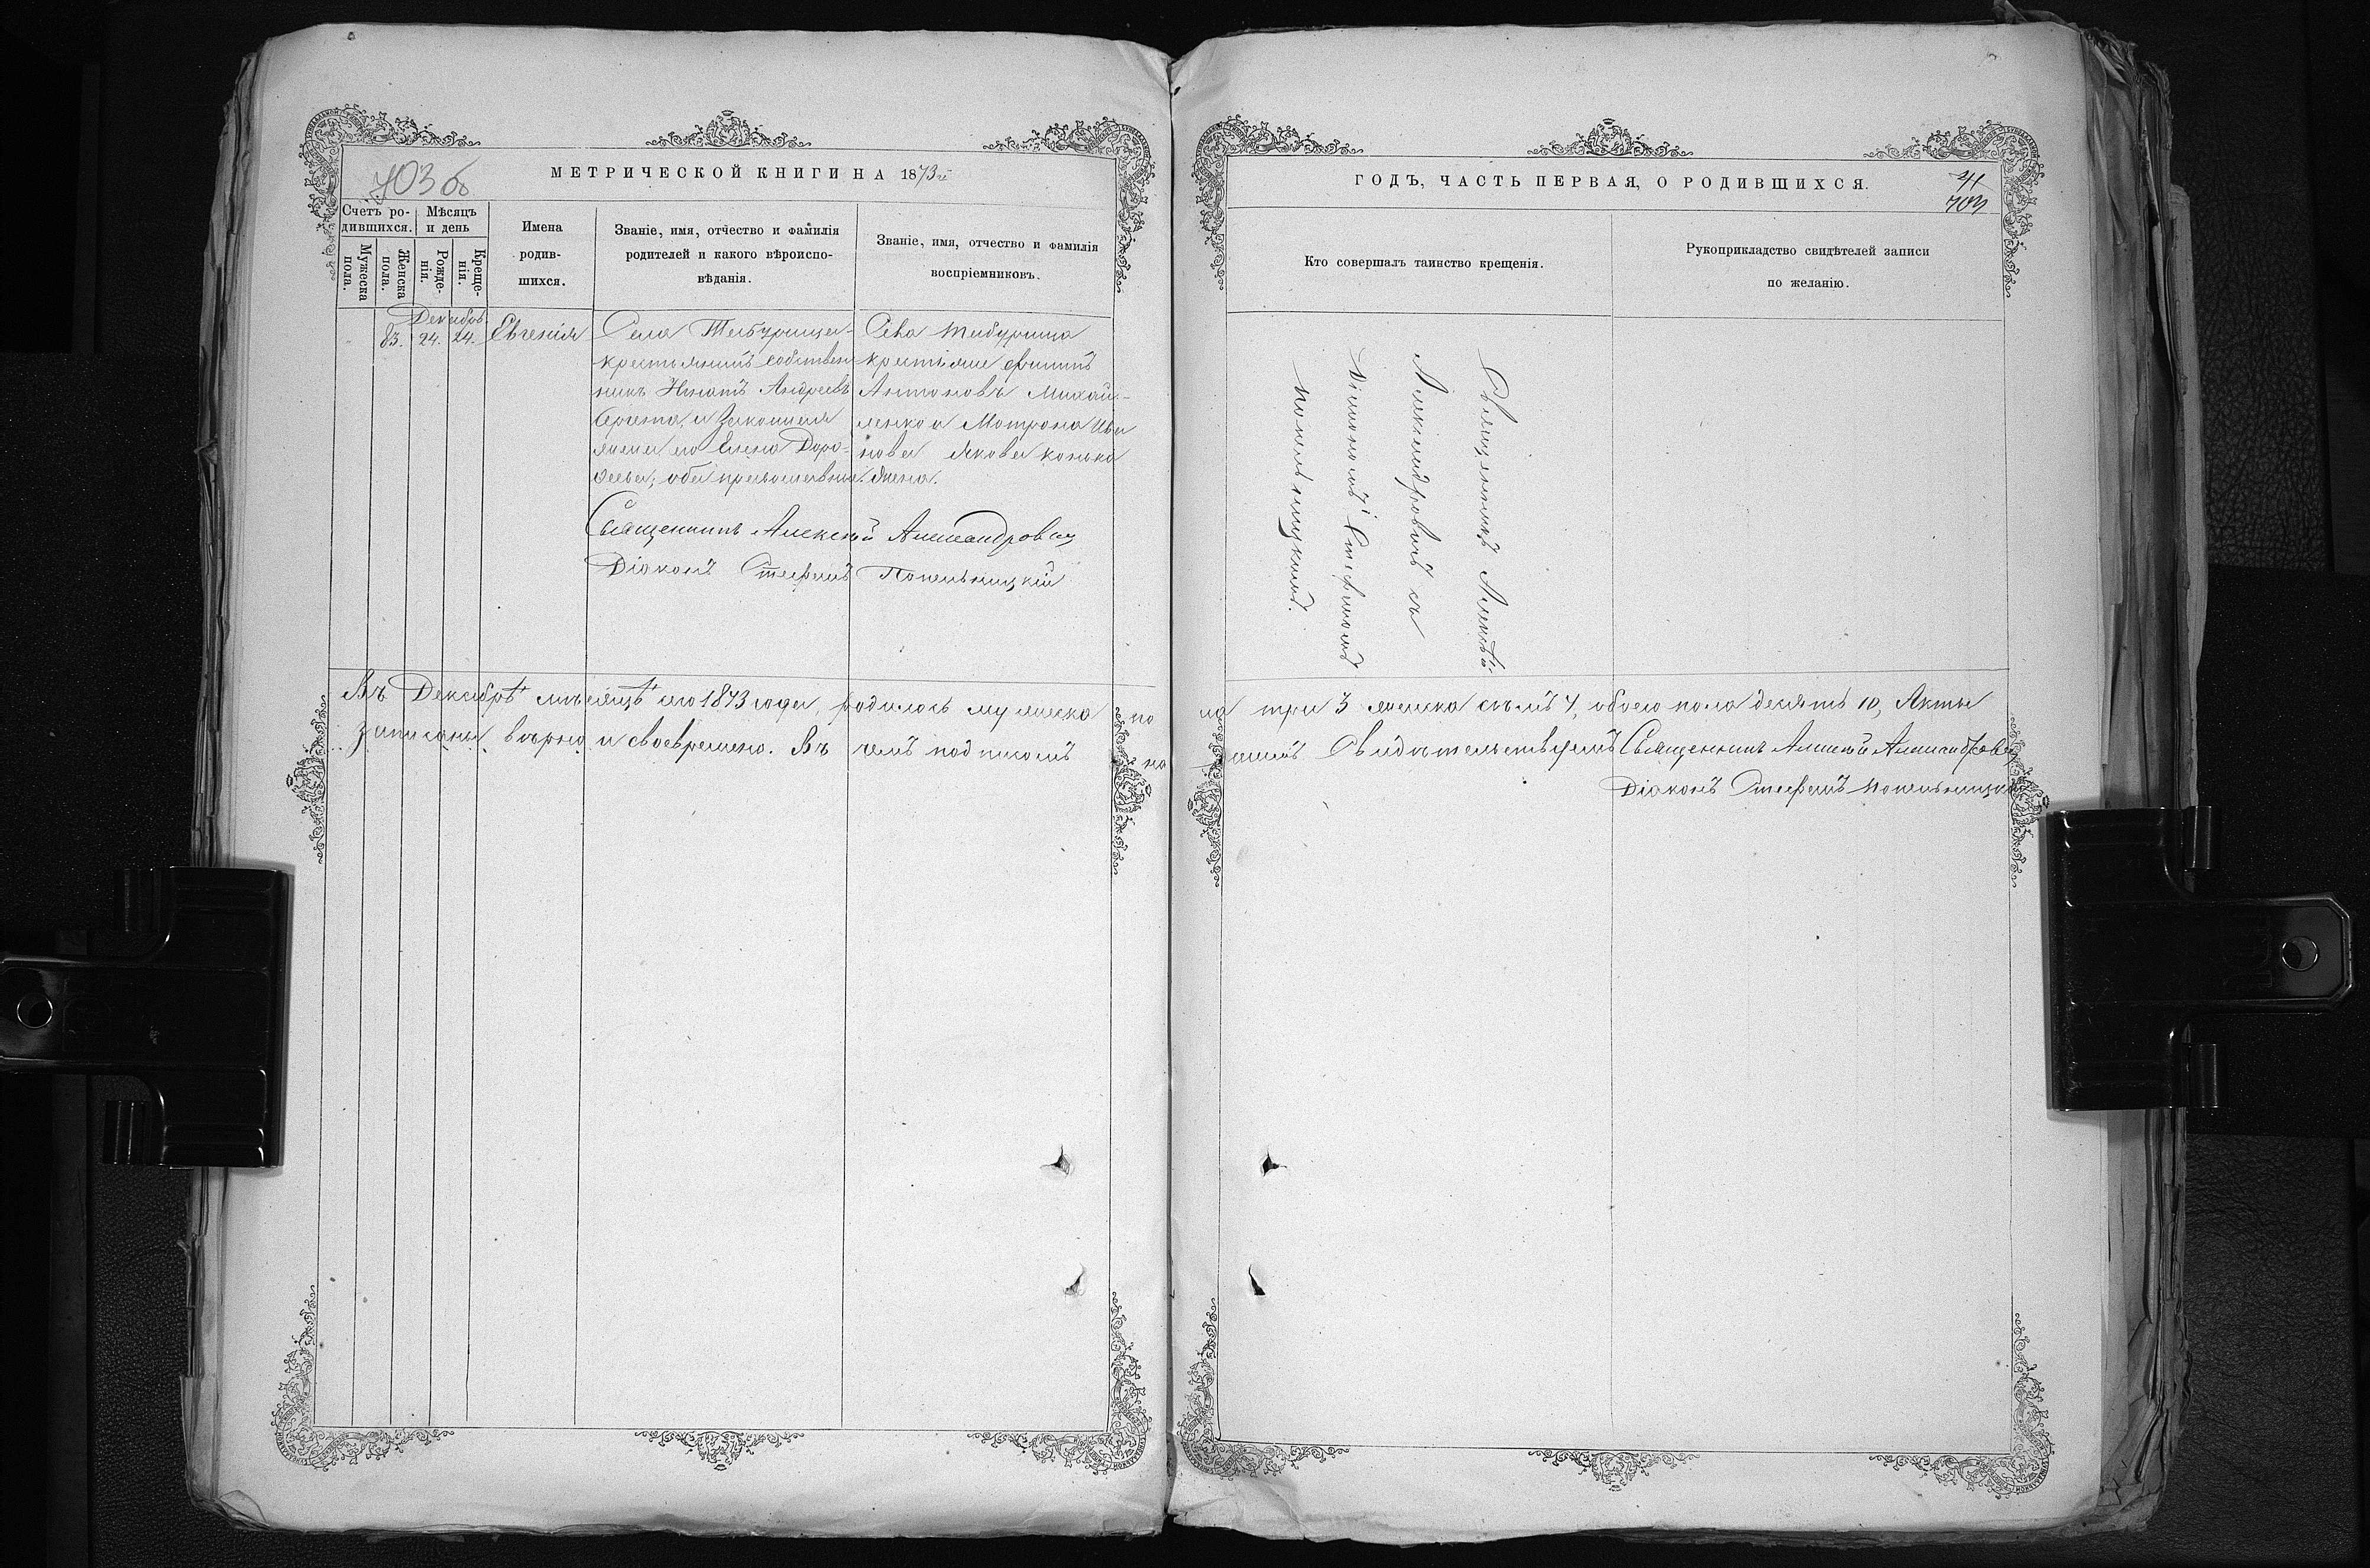 703 об
МЕТРИЧЕСКОЙ КНИГИ НА 1873й
Счетъ ро-
дившихся.
Мѣсяцъ
и день
Мужеска
пола.
Женска
пола.
Рожде-
нія.
Креще-
нія.
Имена
родив-
шихся.
Званіе, имя, отчество и фамилія
родителей и какого вѣроиспо-
вѣданія.
Званіе, имя, отчество и фамилія
воспріемниковъ.
Декабрь
83. 24. 24.
Евгенія
Села
крестьянинъ собствен
никъ Игнатъ Андреевъ
и Законная
жена его Елена Доро-
феева; оба православные.
Села
крестьяне
Антоновъ Михай-
ленко и Мотрона Ива
нова Якова
жена.
Священникъ Алексѣй Александровъ
Діаконъ Стефанъ Попельницкій
Въ Декабрѣ мѣсяцѣ сего 1873 года, родилось мужеска по
записаны вѣрно и своевремено. Въ чемъ подписомъ на
ГОДЪ, ЧАСТЬ ПЕРВАЯ, О РОДИВШИХСЯ.
703
Кто совершалъ таинство крещенія.
Рукоприкладство свидѣтелей записи
по желанію.
Священникъ Алексѣй
Александровъ съ
Діакономъ Стефаномъ
Попельницкимъ.
ла три 3 женска сѣмъ 7, обоего пола десять 10, Акты
шимъ Свидѣтельствуемъ Священникъ Алексѣй Александровъ
Діаконъ Стефанъ Попельницкій